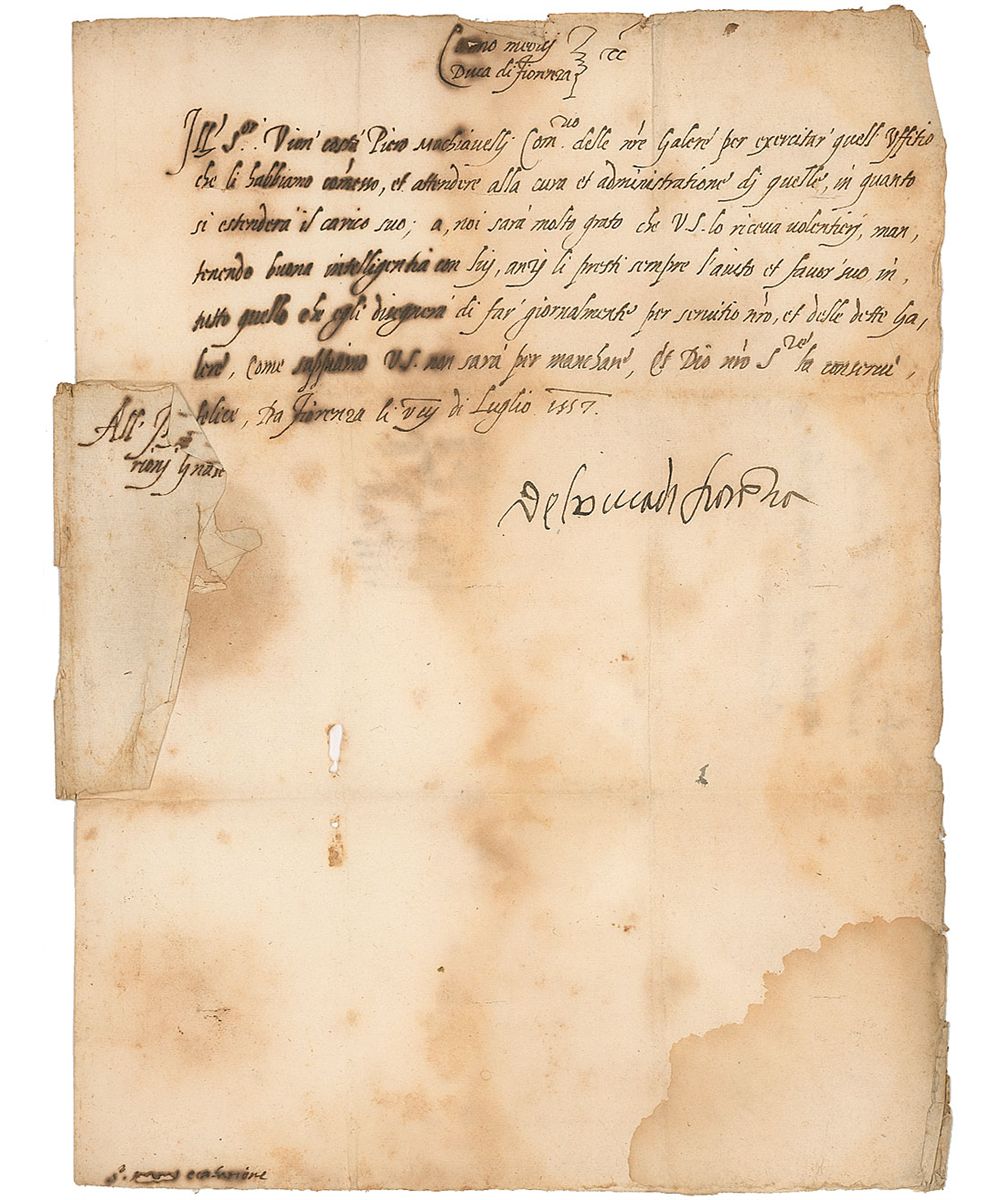 Cosmo medicj
Duca di fiorenza &c
Ill.re S.or. Vien costà Piero Machiavellj Com.rio delle n're Galere per exercitar' quell' Uffitio
che li habbiamo com̃esso, et attendere alla cura et administratione dj quelle, in quanto
si estenderà il carico suo; a, noi sarà molto grato che V.S. lo riceva volentierj, man,
tenendo buona intelligentia con luj, anzj li presti sempre l'aiuto et favor' suo in,
tutto quello che egli disegnerà di far' giornalmente per servitio n'ro, et delle dette Ga,
lere, Come sappiamo V.S. non sarà per manchare, Et Dio n'ro S.re la conservi,
felice, Da fiorenza li vij di Luglio 1557.
Del Duca di fiorenza
All